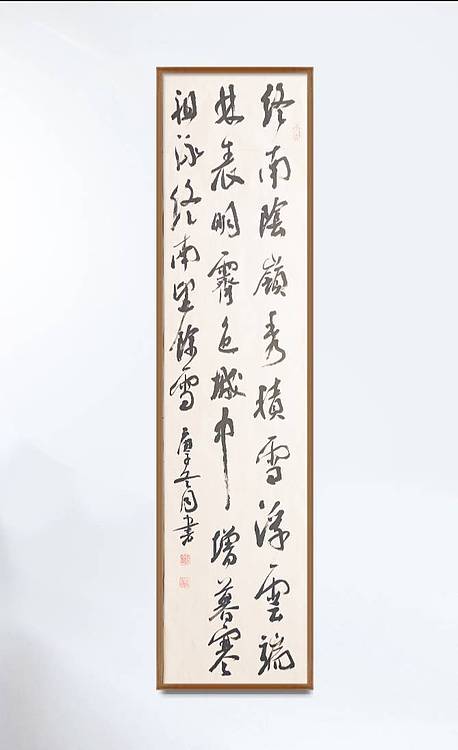 终南陰嶺秀積雪浮雲端
林表明霽色城中增暮寒
祖詠终南望餘雪
庚子冬月書